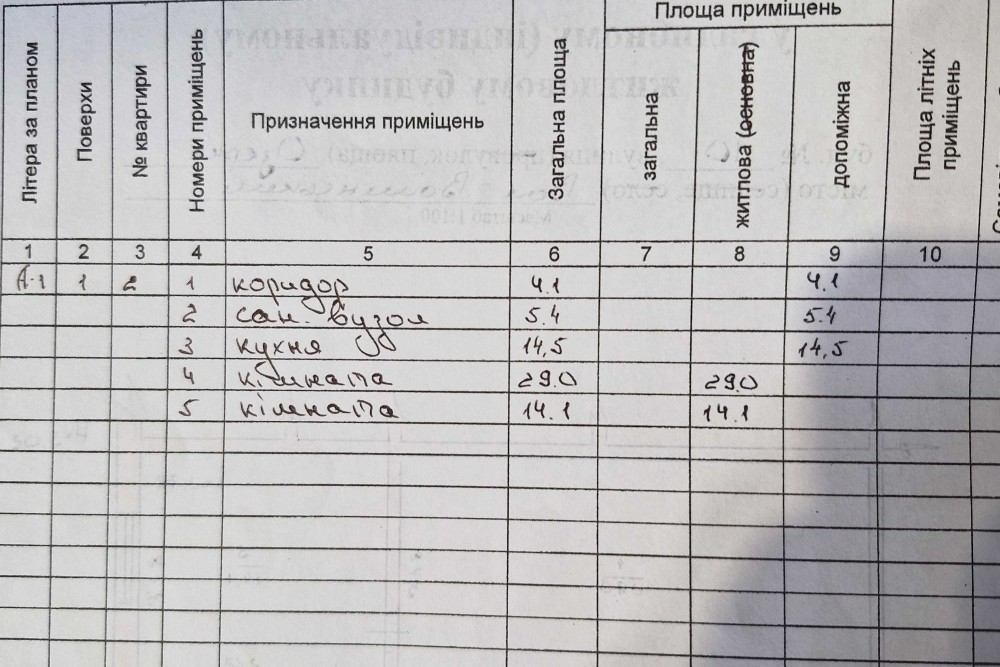 Площа приміщень
Літера за планом Поверхи № квартири Номери приміщень Призначення приміщень Загальна площа загальна житлова (основна) допоміжна Площа літніх приміщень
1 2 3 4 5 6 7 8 9 10
А-1 1 2 1 коридор 4.1 4.1
2 сан. вузол 5.4 5.4
3 кухня 14,5 14,5
4 кімната 29.0 29.0
5 кімната 14.1 14.1